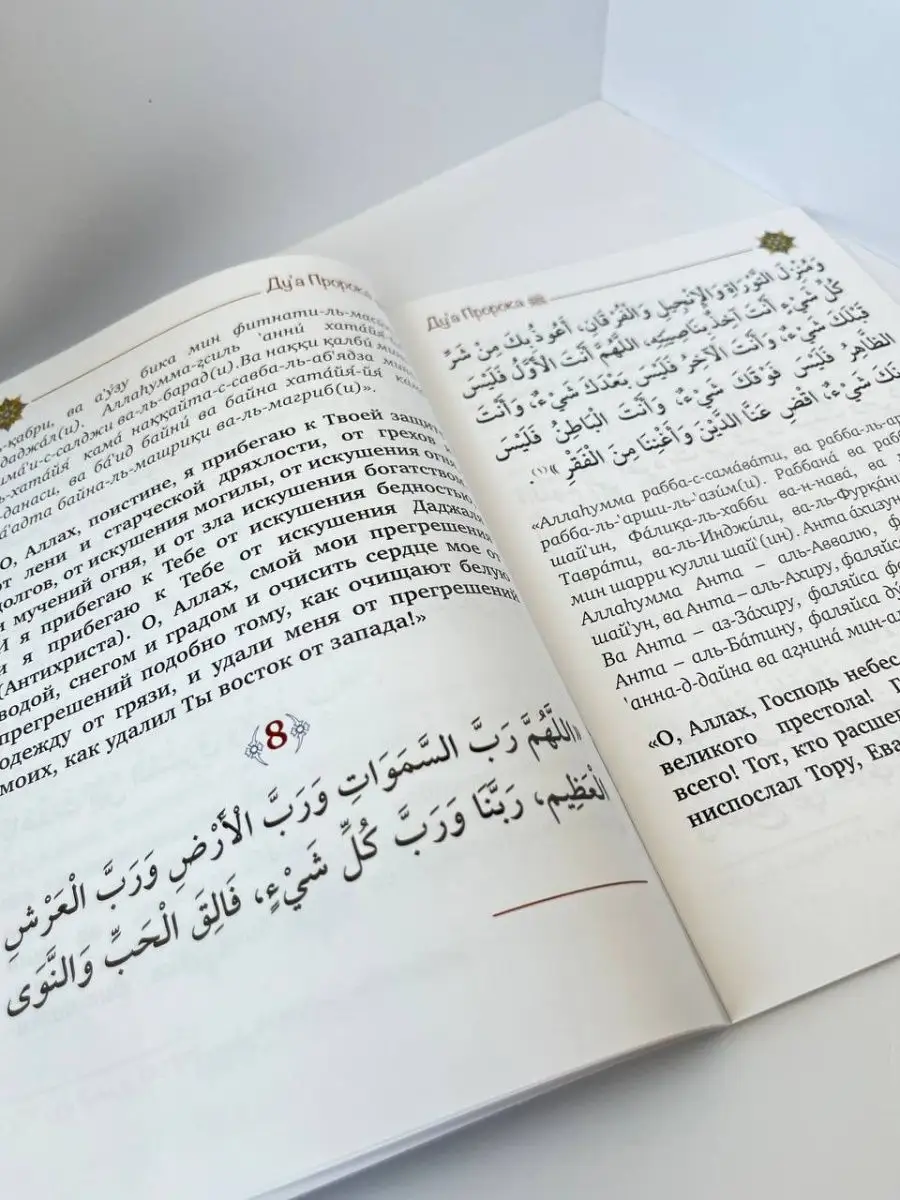 Ду'а Пророка
-қабри, ва а'ӯзу бика мин фитнати-ль-
даджа́л(и). Аллаһумма-ғсиль 'аннӣ хата́йа́-
има́'и-с-салджи ва-ль-барад(и). Ва наққи қалбӣ мин
ль-хата́йа́ кама́ наққайта-с-савба-ль-аб'ядза мина
данаси, ва ба́'ид байнӣ ва байна хата́йа́-йа́ ка
ба́'адта байна-ль-машриқи ва-ль-магриб(и)».
О, Аллах, поистине, я прибегаю к Твоей защите
от лени и старческой дряхлости, от грехов и
долгов, от искушения могилы, от искушения огня
и мучений огня, и от зла искушения богатством
И я прибегаю к Тебе от искушения бедностью
и я прибегаю к Тебе от искушения Даджаля
(Антихриста). О, Аллах, смой мои прегрешения
водой, снегом и градом и очисть сердце мое от
прегрешений подобно тому, как очищают белую
одежду от грязи, и удали меня от прегрешений
моих, как удалил Ты восток от запада!»
8
«اللَّهُمَّ رَبَّ السَّمَوَاتِ وَرَبَّ الْأَرْضِ وَرَبَّ الْعَرْشِ
الْعَظِيمِ، رَبَّنَا وَرَبَّ كُلِّ شَيْءٍ، فَالِقَ الْحَبِّ وَالنَّوَى
Ду'а Пророка ﷺ
وَمُنْزِلَ التَّوْرَاةِ وَالْإِنْجِيلِ وَالْفُرْقَانِ، أَعُوذُ بِكَ مِنْ شَرِّ
كُلِّ شَيْءٍ أَنْتَ آخِذٌ بِنَاصِيَتِهِ، اللَّهُمَّ أَنْتَ الْأَوَّلُ فَلَيْسَ
قَبْلَكَ شَيْءٌ، وَأَنْتَ الْآخِرُ فَلَيْسَ بَعْدَكَ شَيْءٌ، وَأَنْتَ
الظَّاهِرُ فَلَيْسَ فَوْقَكَ شَيْءٌ، وَأَنْتَ الْبَاطِنُ فَلَيْسَ
شَيْءٌ، اقْضِ عَنَّا الدَّيْنَ وَأَغْنِنَا مِنَ الْفَقْرِ»(١).
«Аллаһумма рабба-с-сама́ва́ти, ва рабба-ль-ар
рабба-ль-'арши-ль-'азӣм(и). Раббана́ ва раб
шай'ин, Фа́лиқа-ль-хабби ва-н-нава́, ва
Таврати, ва-ль-Инджӣли, ва-ль-Фурқа́н
мин шарри кулли шай'(ин). Анта а́хизун
Аллаһумма Анта – аль-Аввалю, фаляйса
шай'ун, ва Анта – аль-А́хиру, фаляйс
Ва Анта – аз-За́хиру, фаляйса фа
Анта – аль-Ба́тину, фаляйса дӯ
'анна-д-дайна ва ағнина́ мин-ал
«О, Аллах, Господь небес
великого престола! Г
всего! Тот, кто расщеп
ниспослал Тору, Ева